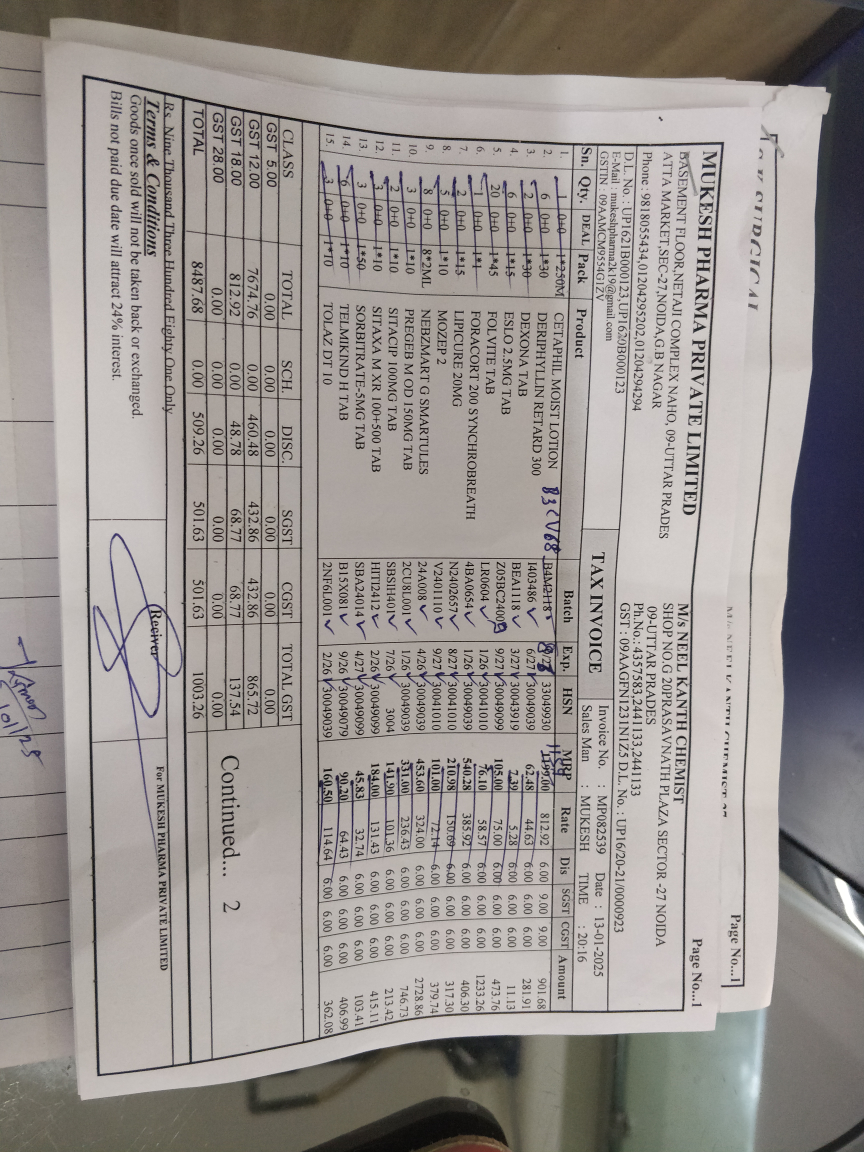 Page No...1
MUKESH PHARMA PRIVATE LIMITED M/s NEEL KANTH CHEMIST Page No...1
BASEMENT FLOOR,NETAJI COMPLEX NAHO, 09-UTTAR PRADES SHOP NO.G 20PRASAVNATH PLAZA SECTOR -27 NOIDA
ATTA MARKET,SEC-27,NOIDA,G.B NAGAR 09-UTTAR PRADES
Phone : 9818055434,01204295202,01204294294 Ph.No.: 4357583,2441133,2441133
D.L. No. : UP1621B000123,UP1620B000123 GST : 09AAGFN1231N1Z5 D.L. No. : UP16/20-21/0000923
E-Mail : mukeshpharma2k19@gmail.com TAX INVOICE Invoice No. : MP082539 Date : 13-01-2025
GSTIN : 09AAMCM9554G1ZV Sales Man : MUKESH TIME : 20:16
Sn. Qty. DEAL Pack Product Batch Exp. HSN MRP Rate Dis SGST CGST Amount
1. 1 0+0 1*250M CETAPHIL MOIST LOTION B4M2118 33049930 1199.00 812.92 6.00 9.00 9.00 901.68
2. 6 0+0 1*30 DERIPHYLLIN RETARD 300 I403486 6/27 30049039 62.48 44.63 6.00 6.00 6.00 281.91
3. 2 0+0 1*30 DEXONA TAB BEA1118 3/27 30043919 7.39 5.28 6.00 6.00 6.00 11.13
4. 6 0+0 1*15 ESLO 2.5MG TAB Z05BC24009 9/27 30049099 105.00 75.00 6.00 6.00 6.00 473.76
5. 20 0+0 1*45 FOLVITE TAB LR0604 1/26 30041010 76.10 58.57 6.00 6.00 6.00 1233.26
6. 1 0+0 1*1 FORACORT 200 SYNCHROBREATH 4BA0654 1/26 30049039 540.28 385.92 6.00 6.00 6.00 406.30
7. 2 0+0 1*15 LIPICURE 20MG N2402657 8/27 30041010 210.98 150.69 6.00 6.00 6.00 317.30
8. 5 0+0 1*10 MOZEP 2 V2401110 9/27 30041010 101.00 72.14 6.00 6.00 6.00 379.74
9. 8 0+0 8*2ML NEBZMART G SMARTULES 24A008 4/26 30049039 453.60 324.00 6.00 6.00 6.00 2728.86
10. 3 0+0 1*10 PREGEB M OD 150MG TAB 2CU8L001 1/26 30049039 331.00 236.43 6.00 6.00 6.00 746.73
11. 2 0+0 1*10 SITACIP 100MG TAB SBSIH401 7/26 3004 141.90 101.36 6.00 6.00 6.00 213.42
12. 3 0+0 1*10 SITAXA M XR 100+500 TAB HITI2412 2/26 30049099 184.00 131.43 6.00 6.00 6.00 415.11
13. 3 0+0 1*50 SORBITRATE-5MG TAB SBA24014 4/27 30049099 45.83 32.74 6.00 6.00 6.00 103.41
14. 6 0+0 1*10 TELMIKIND H TAB B15X081 9/26 30049079 90.20 64.43 6.00 6.00 6.00 406.99
15. 3 0+0 1*10 TOLAZ DT 10 2NF6L001 2/26 30049039 160.50 114.64 6.00 6.00 6.00 362.08
CLASS TOTAL SCH. DISC. SGST CGST TOTAL GST
GST 5.00 0.00 0.00 0.00 0.00 0.00 0.00
GST 12.00 7674.76 0.00 460.48 432.86 432.86 865.72
GST 18.00 812.92 0.00 48.78 68.77 68.77 137.54
GST 28.00 0.00 0.00 0.00 0.00 0.00 0.00
Continued... 2
TOTAL 8487.68 0.00 509.26 501.63 501.63 1003.26
Rs. Nine Thousand Three Hundred Eighty One Only
Terms & Conditions Reciver For MUKESH PHARMA PRIVATE LIMITED
Goods once sold will not be taken back or exchanged.
Bills not paid due date will attract 24% interest.